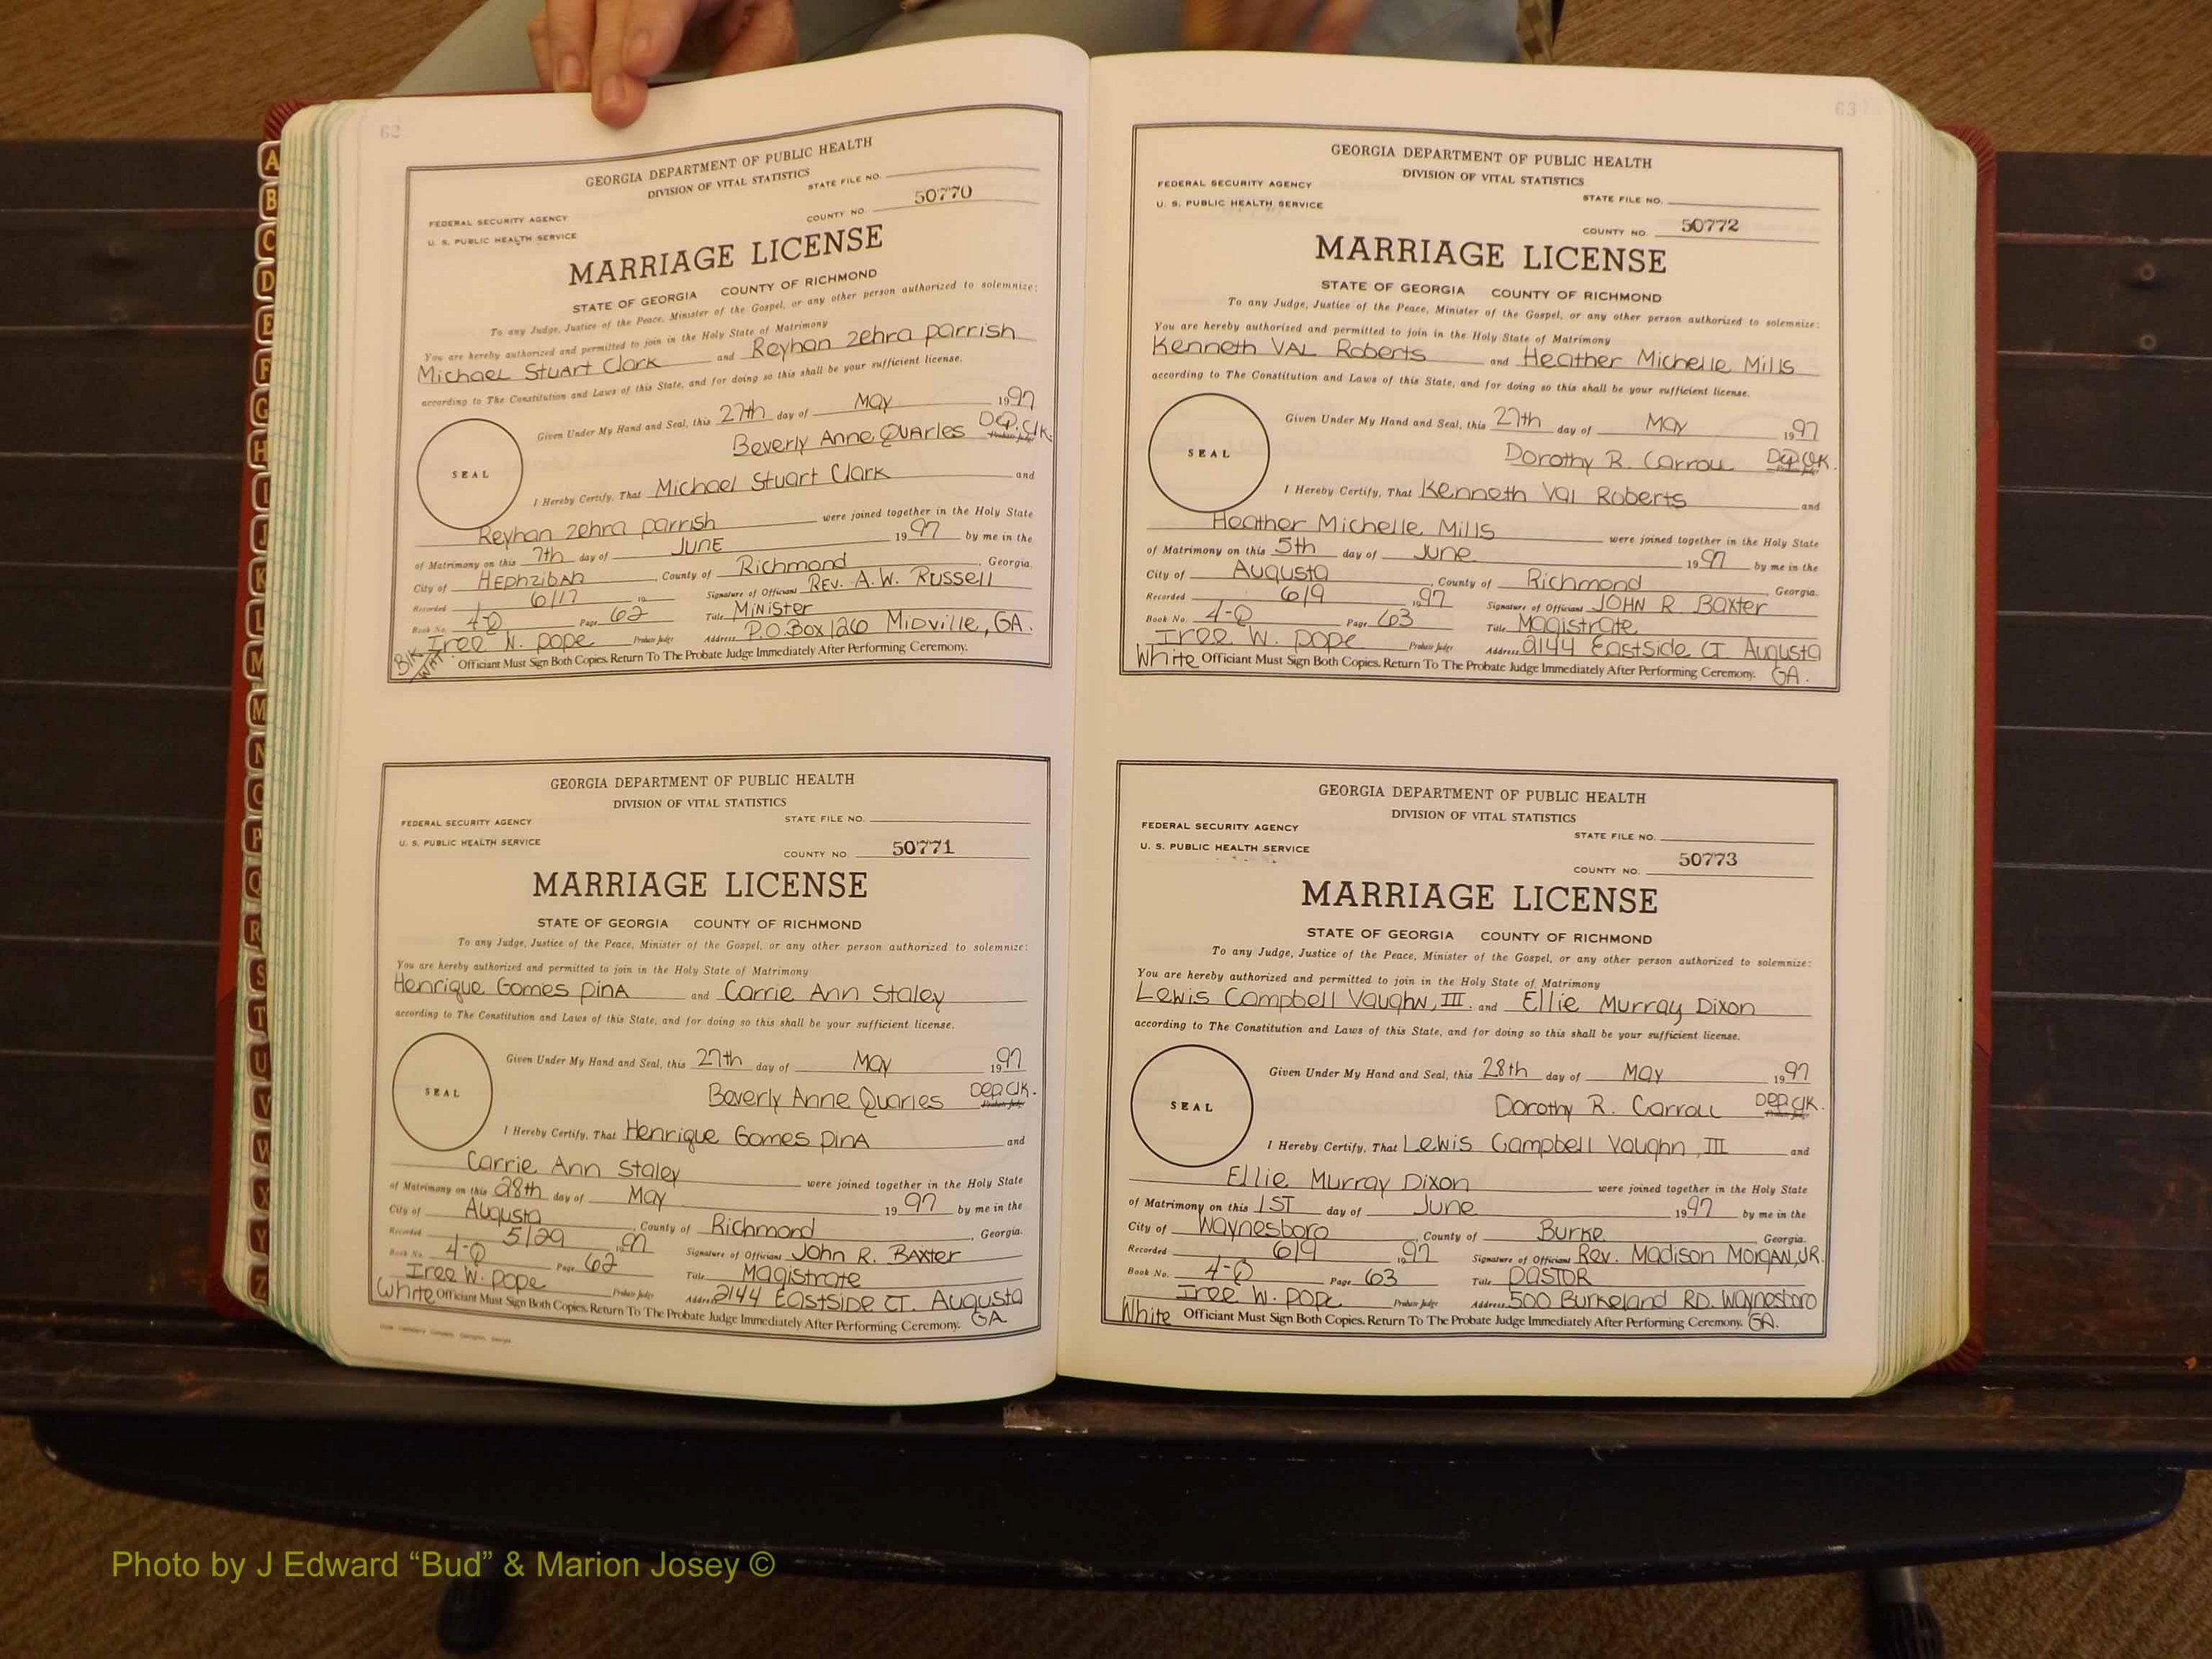 62
GEORGIA DEPARTMENT OF PUBLIC HEALTH
DIVISION OF VITAL STATISTICS
STATE FILE NO.
FEDERAL SECURITY AGENCY
COUNTY NO 50770
U. S. PUBLIC HEALTH SERVICE
MARRIAGE LICENSE
STATE OF GEORGIA COUNTY OF RICHMOND
To any Judge, Justice of the Peace, Minister of the Gospel, or any other person authorized to solemnize:
You are hereby authorized and permitted to join in the Holy State of Matrimony
Michael Stuart Clark and Reyhan Zehra Parrish
according to The Constitution and Laws of this State, and for doing so this shall be your sufficient license.
Given Under My Hand and Seal, this 27th day of May 1997
Beverly Anne Quarles Dep. Clk.
SEAL
I Hereby Certify, That Michael Stuart Clark and
Reyhan Zehra Parrish were joined together in the Holy State
of Matrimony on this 7th day of JUNE 1997 by me in the
City of Hephzibah, County of Richmond, Georgia.
Recorded 6/17 19 Signature of Officiant Rev. A.W. Russell
Book No. 4-Q Page 62 Title Minister
Iree W. Pope Probate Judge Address P.O. Box 126 Midville, GA.
Blk WHT Officiant Must Sign Both Copies. Return To The Probate Judge Immediately After Performing Ceremony.
GEORGIA DEPARTMENT OF PUBLIC HEALTH
DIVISION OF VITAL STATISTICS
STATE FILE NO.
FEDERAL SECURITY AGENCY
U. S. PUBLIC HEALTH SERVICE
COUNTY NO 50771
MARRIAGE LICENSE
STATE OF GEORGIA COUNTY OF RICHMOND
To any Judge, Justice of the Peace, Minister of the Gospel, or any other person authorized to solemnize:
You are hereby authorized and permitted to join in the Holy State of Matrimony
Henrique Gomes Pina and Carrie Ann Staley
according to The Constitution and Laws of this State, and for doing so this shall be your sufficient license.
Given Under My Hand and Seal, this 27th day of May 1997
Beverly Anne Quarles Dep Clk.
SEAL
I Hereby Certify, That Henrique Gomes Pina and
Carrie Ann Staley were joined together in the Holy State
of Matrimony on this 28th day of May 1997 by me in the
City of Augusta, County of Richmond, Georgia.
Recorded 5/29 1997 Signature of Officiant John R. Baxter
Book No. 4-Q Page 62 Title Magistrate
Iree W. Pope Probate Judge Address 2144 Eastside CT. Augusta
White Officiant Must Sign Both Copies. Return To The Probate Judge Immediately After Performing Ceremony. GA
63
GEORGIA DEPARTMENT OF PUBLIC HEALTH
DIVISION OF VITAL STATISTICS
FEDERAL SECURITY AGENCY
STATE FILE NO.
U. S. PUBLIC HEALTH SERVICE
COUNTY NO. 50772
MARRIAGE LICENSE
STATE OF GEORGIA COUNTY OF RICHMOND
To any Judge, Justice of the Peace, Minister of the Gospel, or any other person authorized to solemnize:
You are hereby authorized and permitted to join in the Holy State of Matrimony
Kenneth Val Roberts and Heather Michelle Mills
according to The Constitution and Laws of this State, and for doing so this shall be your sufficient license.
Given Under My Hand and Seal, this 27th day of May 1997
Dorothy R. Carroll Dep Clk.
SEAL
I Hereby Certify, That Kenneth Val Roberts and
Heather Michelle Mills were joined together in the Holy State
of Matrimony on this 5th day of June 1997 by me in the
City of Augusta, County of Richmond, Georgia.
Recorded 6/9 1997 Signature of Officiant JOHN R. Baxter
Book No. 4-Q Page 63 Title Magistrate
Iree W. Pope Probate Judge Address 2144 Eastside CT Augusta
White Officiant Must Sign Both Copies. Return To The Probate Judge Immediately After Performing Ceremony. GA.
GEORGIA DEPARTMENT OF PUBLIC HEALTH
DIVISION OF VITAL STATISTICS
FEDERAL SECURITY AGENCY
STATE FILE NO.
U. S. PUBLIC HEALTH SERVICE
COUNTY NO. 50773
MARRIAGE LICENSE
STATE OF GEORGIA COUNTY OF RICHMOND
To any Judge, Justice of the Peace, Minister of the Gospel, or any other person authorized to solemnize:
You are hereby authorized and permitted to join in the Holy State of Matrimony
Lewis Campbell Vaughn, III. and Ellie Murray Dixon
according to The Constitution and Laws of this State, and for doing so this shall be your sufficient license.
Given Under My Hand and Seal, this 28th day of May 1997
Dorothy R. Carroll Dep Clk.
SEAL
I Hereby Certify, That Lewis Campbell Vaughn, III and
Ellie Murray Dixon were joined together in the Holy State
of Matrimony on this 1ST day of June 1997 by me in the
City of Waynesboro, County of Burke, Georgia.
Recorded 6/9 1997 Signature of Officiant Rev. Madison Morgan, JR.
Book No. 4-Q Page 63 Title PASTOR
Iree W. Pope Probate Judge Address 500 Burkeland RD. Waynesboro
White Officiant Must Sign Both Copies. Return To The Probate Judge Immediately After Performing Ceremony. GA.
A
B
C
D
E
F
G
H
I
J
K
L
M
M
N
O
P
Q
R
S
T
U
V
W
X
Y
Z
Photo by J Edward “Bud” & Marion Josey ©